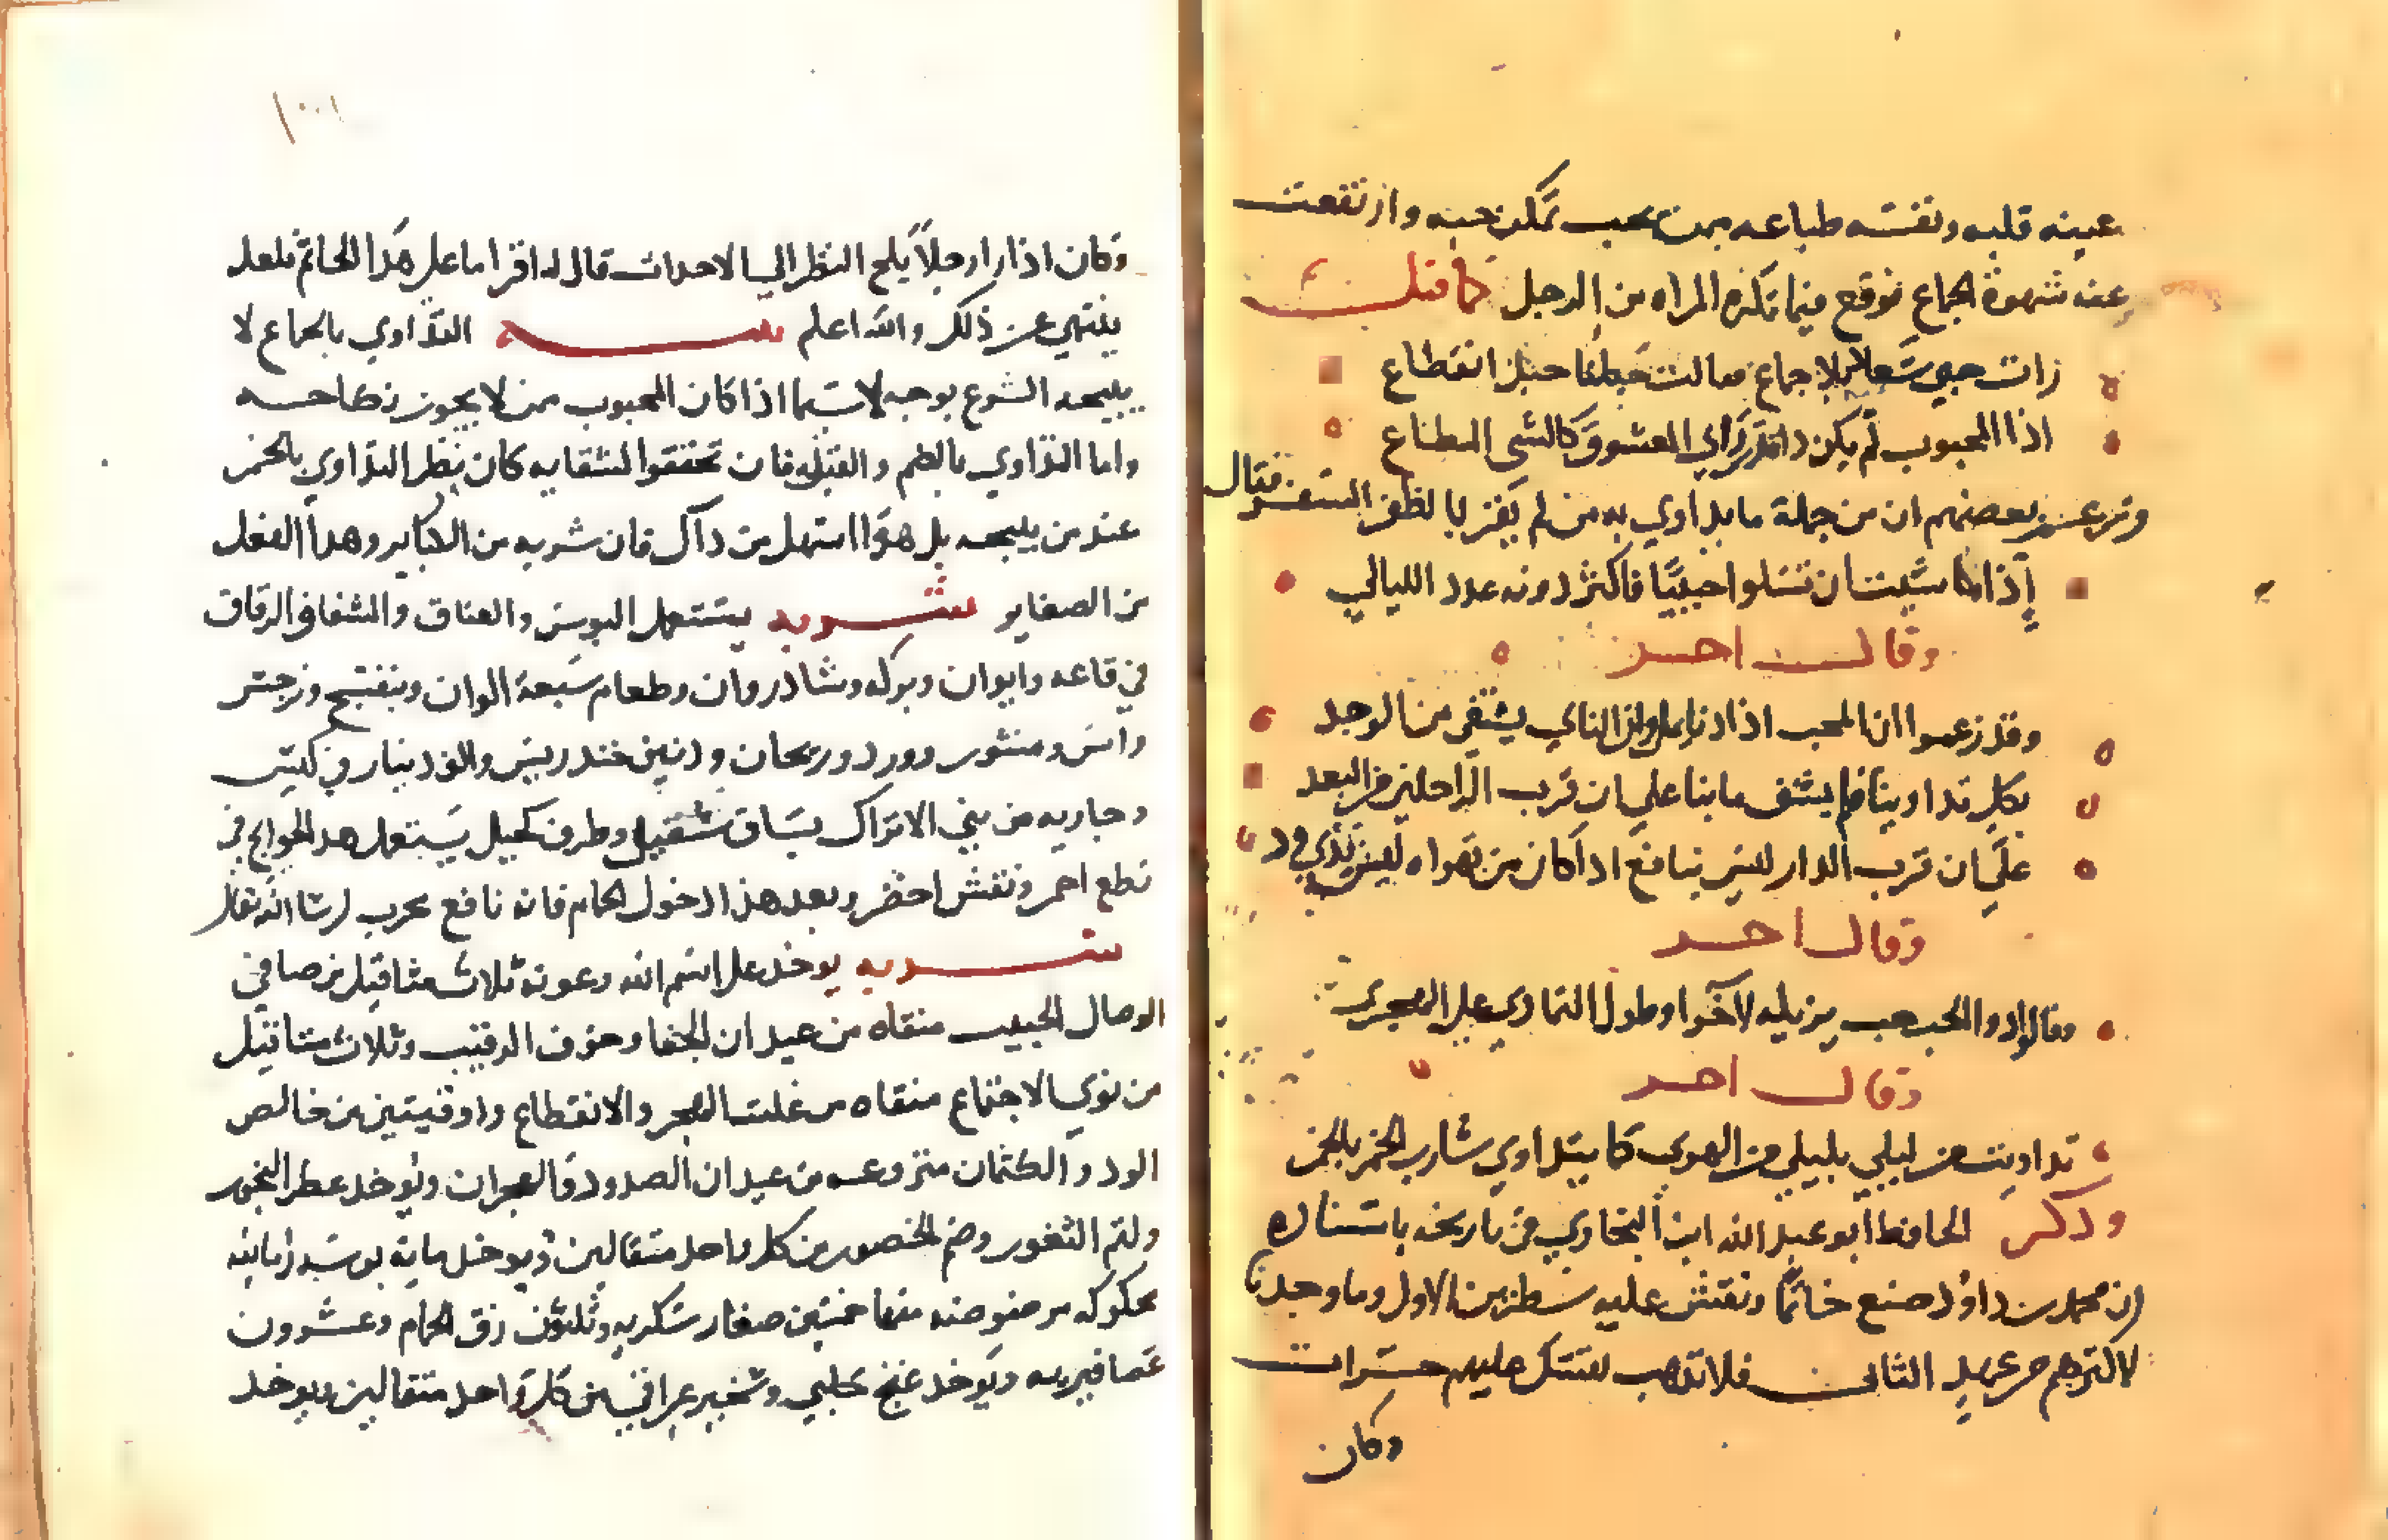 عينه قلبه ونفسه طباعه بمن يحب تمكن حبه وارتفعت
عنه شهوة الجماع فوقع فيما تكره المراه من الرجل كما قيل
رات حبي سعاد بلا جماع فقالت حبلنا حبل انقطاع
اذا المحبوب لم يكن دا يري المعشوق كالشي المطاع
وزعم بعضهم ان من جملة ما يداوي به من لم يفز بالظفر السفر فقال
إذا ما شيت ان تسلوا حبيبًا فاكثر دونه عدد الليالي
وقال اخر
وقد زعموا ان المحب اذا دنا يمل وان الناي يشفي من الوجد
بكل تداوينا فلم يشف ما بنا علي ان قرب الدار خير من البعد
علي ان قرب الدار ليس بنافع اذا كان من تهواه ليس بذي ود
وقال اخر
وقالوا دوا الحب حب يزيله لاخر او طول التمادي علي الهجر
وقال اخر
تداويت من ليلي بليلي من الهوي كما يتداوي شارب الخمر بالخمر
وذكر الحافظ ابو عبد الله ابن البخاري في تاريخه باسناده
ان محمد بن داود صنع خاتمًا ونقش عليه سطرين الاول وما وجدنا
لاكثرهم من عهدٍ الثاني فلا تذهب نفسك عليهم حسرات
وكان
وكان اذا را رجلاً يلح النظر الي الاحداث قال له اقرا ما على هذا الخاتم فلعل
ينتهي عن ذلك والله اعلم التداوي بالجماع لا
يبيحه الشرع بوجه لا سيما اذا كان المحبوب ممن لا يجوز نكاحه
واما التداوي بالضم والقبله فان تحققوا الشفا به كان نظير التداوي بالخمر
عند من يبيحه بل هوا اسهل من داك فان شربه من الكباير وهدا الفعل
من الصغاير شربه يستعمل البوس والعناق والشفاف الرقاق
في قاعه وايوان وبركه وشادروان وطعام سبعة الوان وبنفسج ونرجس
واس ومنثور وورد وريحان ودنين خندريس والف دينار في كيس
وجاريه من بني الاتراك بساق ثقيل وطرف كحيل يستعمل هده الحوايج في
نطع احمر ونقش اخضر وبعد هذا دخول الحمام فانه نافع مجرب ان شا الله تعالى
شربه يوخد على اسم الله وعونه ثلاث مثاقيل من صافي
الوصال الحبيب منقاه من عيدان الجفا وخوف الرقيب وثلاث مثاقيل
من نوي الاجتماع منقاه من غلت الهجر والانقطاع واوقيتين من خالص
الود والكتمان منزوعه من عيدان الصدود والهجران ويوخد عطر البخور
ولثم الثغور وضم الخصور من كل واحد مثقالين ويوخد مايه بوسه رمانيه
محكوكه مرضوضه منها خمسين صغار سكريه وثلاثون زق الحمام وعشرون
عصافيريه ويوخد غنج حلبي وشخير عراقي من كل واحد مثقالين ويوخد